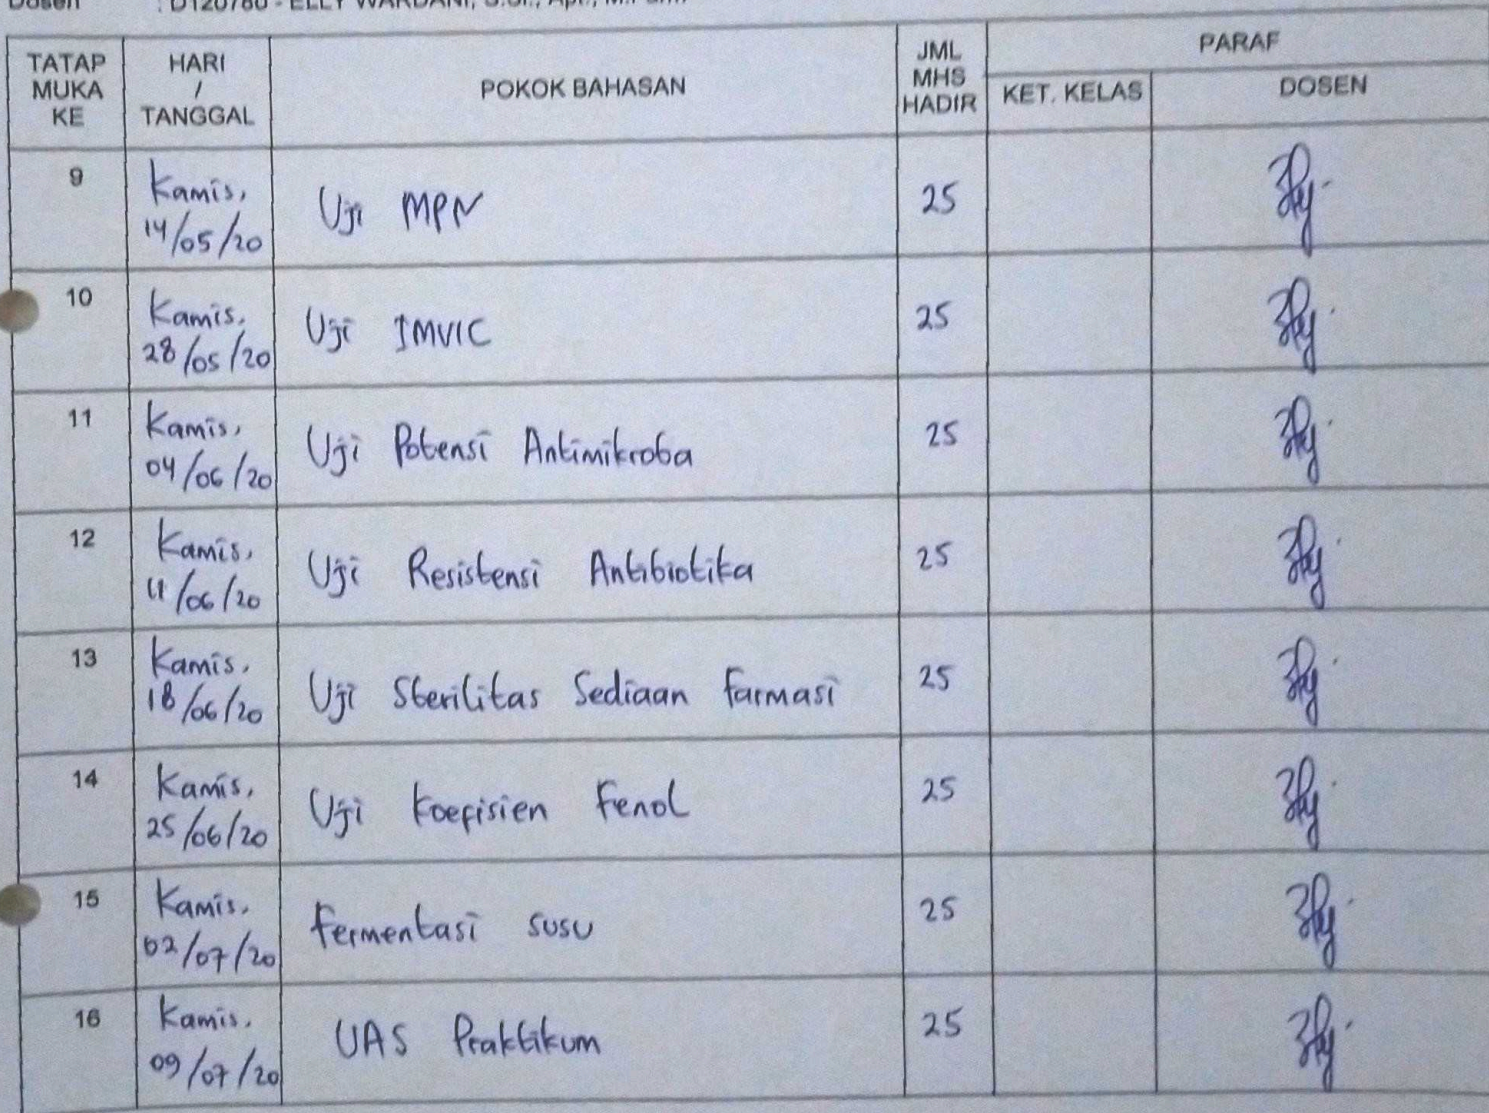 Dosen : D120780 - ELLY WARDANI, S.Si., Apt., M.Farm
TATAP MUKA KE
HARI / TANGGAL
POKOK BAHASAN
JML MHS HADIR
PARAF
KET. KELAS
DOSEN
9 Kamis, 14/05/20 Uji MPN 25
10 Kamis, 28/05/20 Uji IMVIC 25
11 Kamis, 04/06/20 Uji Potensi Antimikroba 25
12 Kamis, 11/06/20 Uji Resistensi Antibiotika 25
13 Kamis, 18/06/20 Uji Sterilitas Sediaan Farmasi 25
14 Kamis, 25/06/20 Uji Koefisien Fenol 25
15 Kamis, 02/07/20 Fermentasi susu 25
16 Kamis, 09/07/20 UAS Praktikum 25